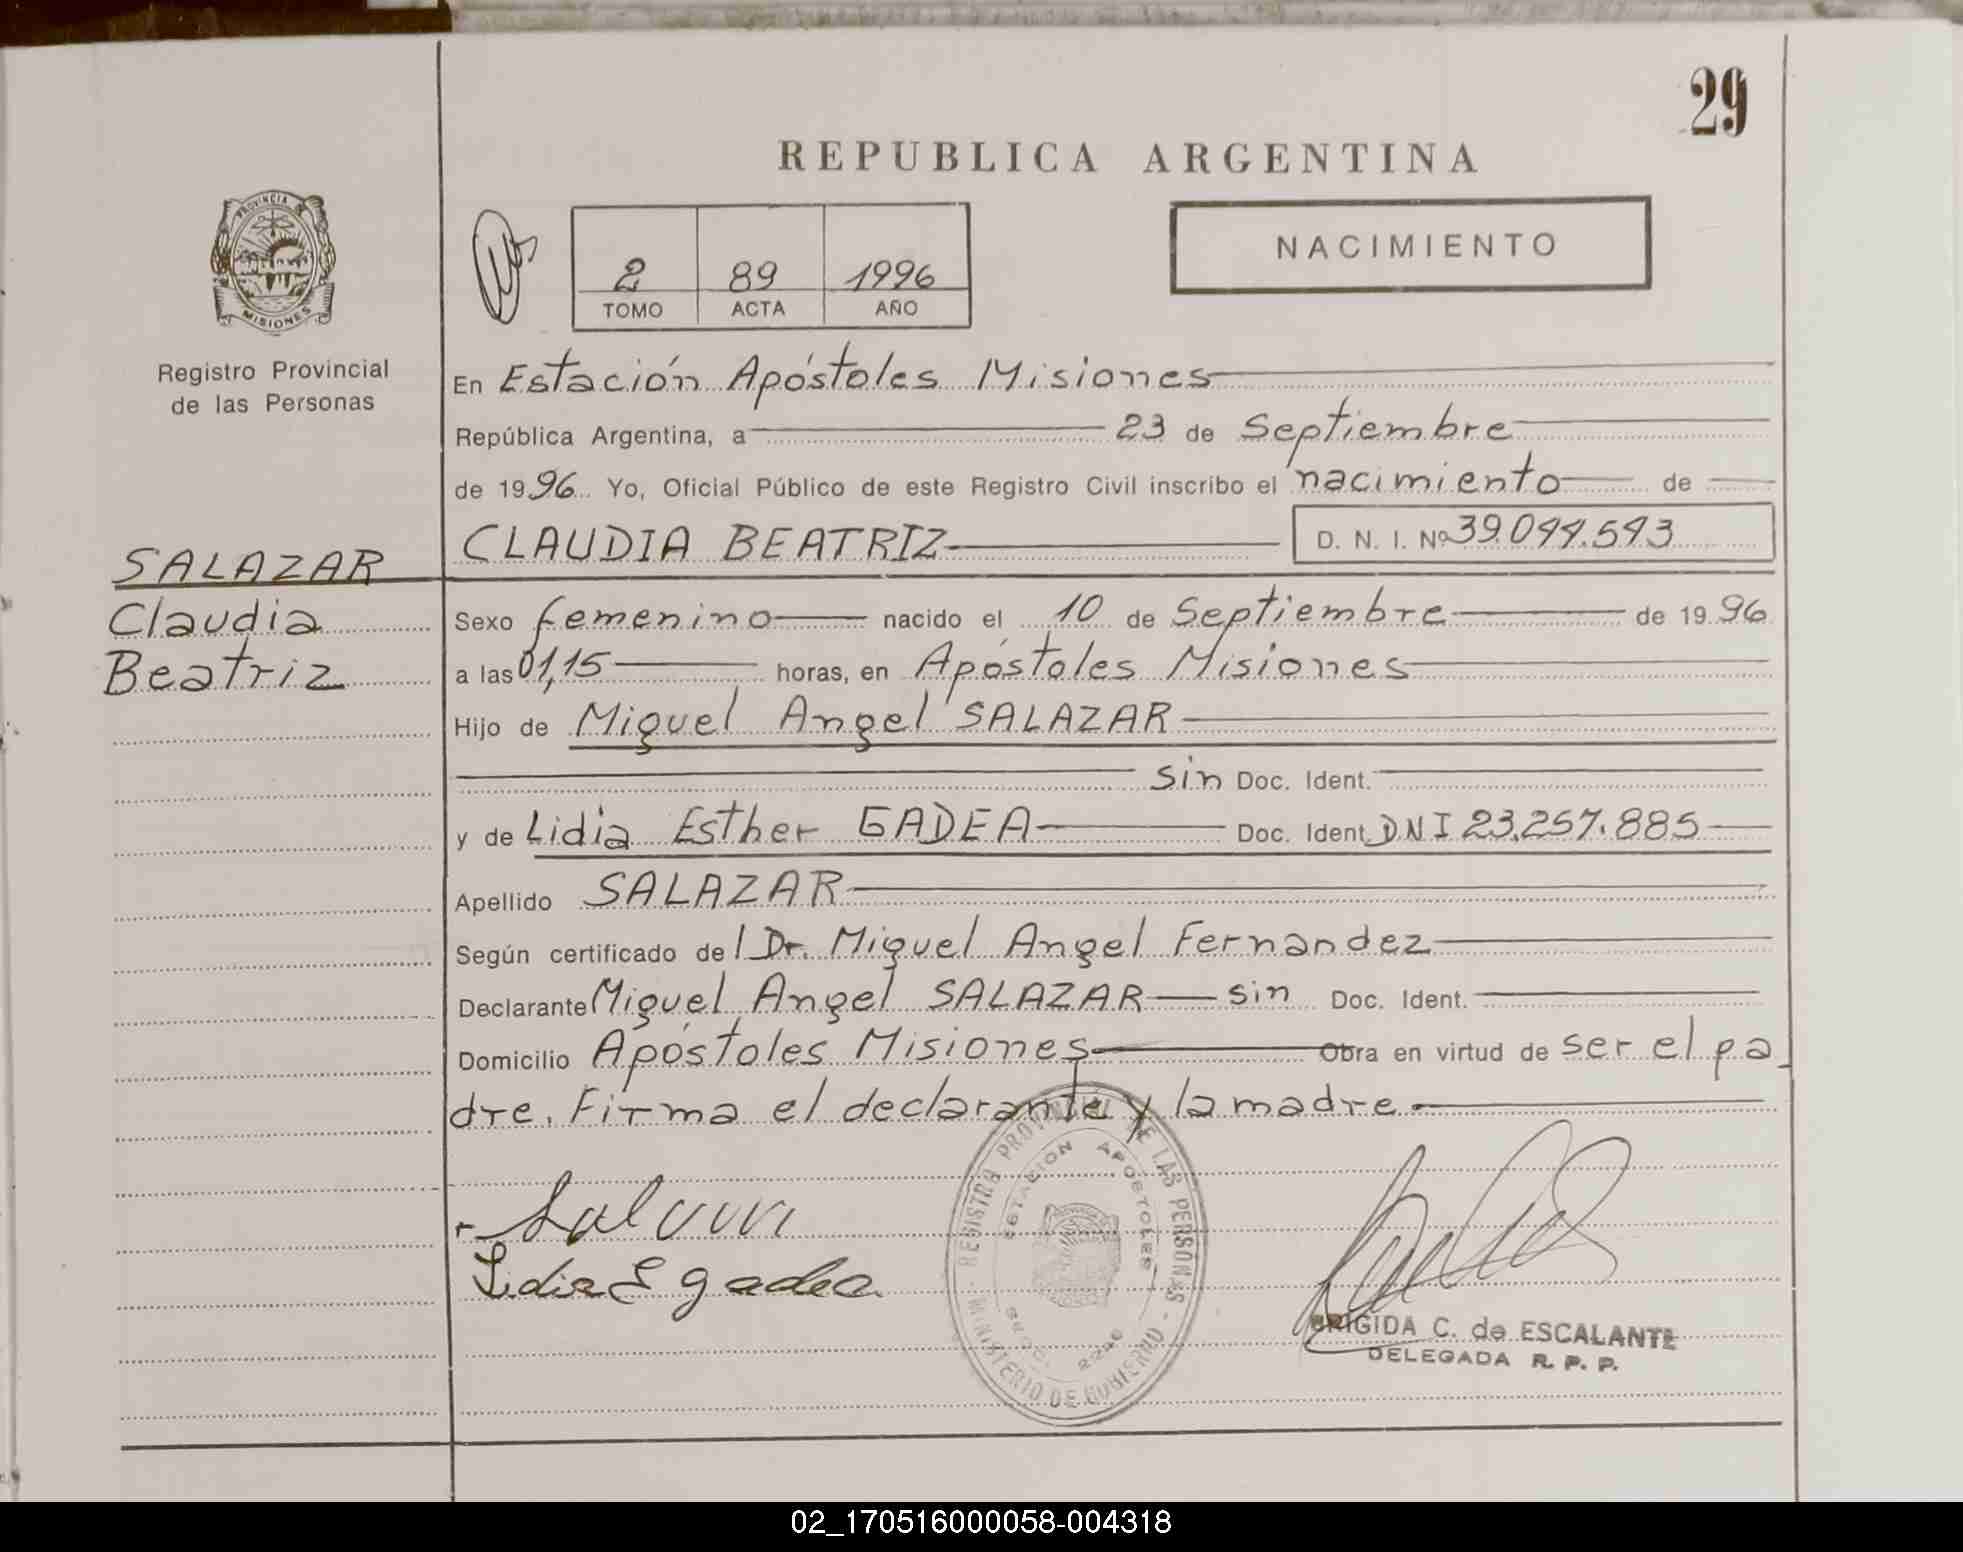 29
REPUBLICA ARGENTINA
PROVINCIA DE
MISIONES
Registro Provincial
de las Personas
2 89 1996
TOMO ACTA AÑO
NACIMIENTO
En Estación Apóstoles Misiones
República Argentina, a 23 de Septiembre
de 1996 Yo, Oficial Público de este Registro Civil inscribo el nacimiento de
CLAUDIA BEATRIZ D. N. I. Nº
SALAZAR
Claudia
Beatriz
Sexo femenino nacido el 10 de Septiembre de 1996
a las 01,15 horas, en Apóstoles Misiones
Hijo de Miguel Angel SALAZAR
sin Doc. Ident.
y de Lidia Esther GADEA Doc. Ident. DNI 23.257.885
Apellido SALAZAR
Según certificado del Dr. Miguel Angel Fernandez
Declarante Miguel Angel SALAZAR sin Doc. Ident.
Domicilio Apóstoles Misiones Obra en virtud de ser el pa_
dre. Firma el declarante y la madre.
Lidia E gadea
REGISTRO PROVINCIAL DE LAS PERSONAS
ESTACION APOSTOLES
MINISTERIO DE GOBIERNO
BRIGIDA C. de ESCALANTE
DELEGADA R. P. P.
02_170516000058-004318